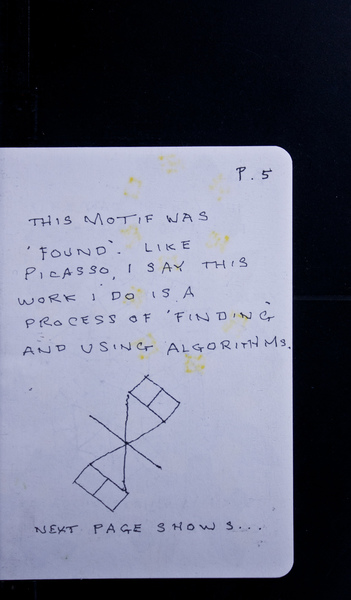 P. 5
THIS MOTIF WAS
'FOUND'. LIKE
PICASSO, I SAY THIS
WORK I DO IS A
PROCESS OF 'FINDING'
AND USING ALGORITHMS.
NEXT PAGE SHOWS...